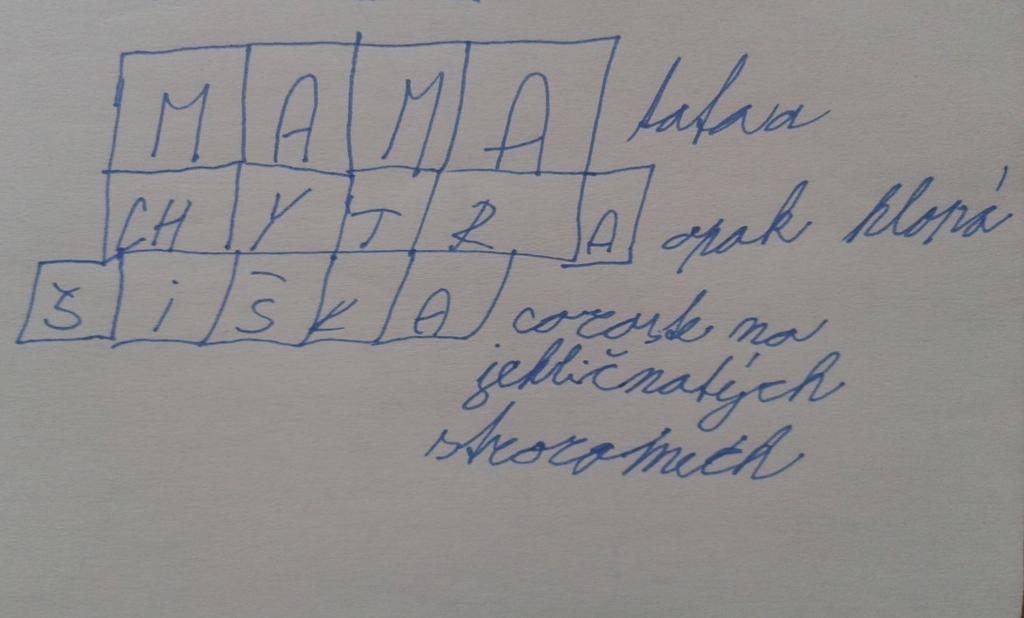 MAMA tatava
CHYTRA opak hlopá
ŠIŠKA corosk na
jehličnatých